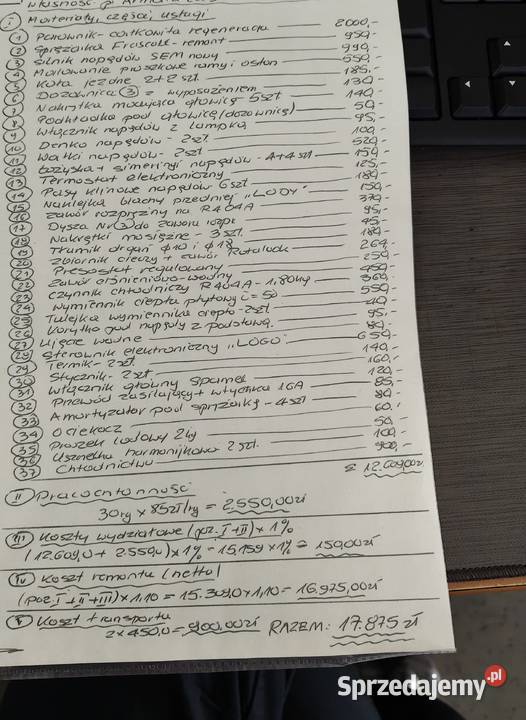 I Materiały, części, usługi
1 Parownik - całkowita regeneracja 2000,-
2 Sprężarka Frascold - remont 950,-
3 Silnik napędów SEM nowy 990,-
4 Malowanie proszkowe ramy i osłon 550,-
5 Koła jezdne 2+2 szt. 185,-
6 Dozownica (3) z wyposażeniem 130,-
7 Nakrętka mocująca głowicę - 5szt 140,-
8 Podkładka pod głowicę (dozownicę) 50,-
9 Włącznik napędów z lampką 95,-
10 Denko napędów - 2szt. 100,-
11 Wałki napędów - 2szt 520,-
12 Łożyska + simeringi napędów - 4+4 szt 150,-
13 Termostat elektroniczny 125,-
14 Pasy klinowe napędów 6szt 180,-
15 Naklejka blachy przedniej "LODY" 150,-
16 Zawór rozprężny na R404A 370,-
17 Dysza Nr(3) do zaworu rozpr. 95,-
18 Nakrętki mosiężne - 3szt. 45,-
19 Tłumik drgań ϕ10 i ϕ18 180,-
20 Zbiornik cieczy + zawór Rotalock 260,-
21 Presostat regulowany 250,-
22 Zawór ciśnieniowo-wodny 450,-
23 Czynnik chłodniczy R404A - 1,80kg 360,-
24 Wymiennik ciepła płytowy i=50 550,-
25 Tulejka wymiennika ciepła - 2szt. 40,-
26 Korytko pod napędy z podstawą 95,-
27 Węże wodne 80,-
28 Sterownik elektroniczny "LOGO" 650,-
29 Termik - 2szt. 140,-
30 Stycznik - 2szt 160,-
31 Włącznik główny Spamel 120,-
32 Przewód zasilający + wtyczka 16A 85,-
33 Amortyzator pod sprężarkę - 4szt 80,-
34 Ociekacz 60,-
35 Proszek lodowy 2kg 50,-
36 Uszczelka harmonijkowa 2szt. 100,-
37 Chłodnictwo 900,-
Σ 12.609,00zł
II Pracochłonność
30rg × 85zł/rg = 2550,00zł
III Koszty wydziałowe (poz. I+II) × 1%
(12.609,0 + 2550,0) × 1% - 15.159 × 1% = 150,00zł
IV Koszt remontu (netto)
(poz. I+II+III) × 1,10 = 15.309,0 × 1,10 - 16.975,00zł
V Koszt transportu
2 × 450,0 = 900,00zł RAZEM: 17.875 zł
Sprzedajemy.pl